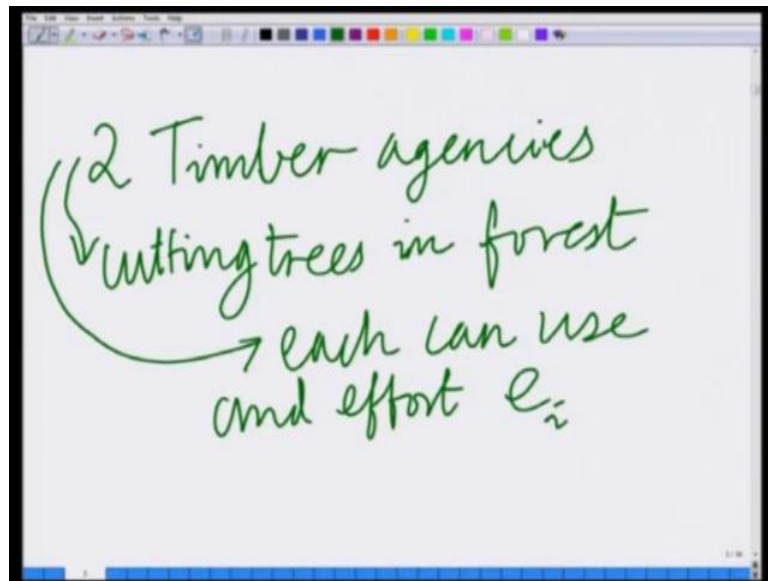 File Edit View Insert Actions Tools Help
2 Timber agencies
cutting trees in forest
each can use
and effort ei